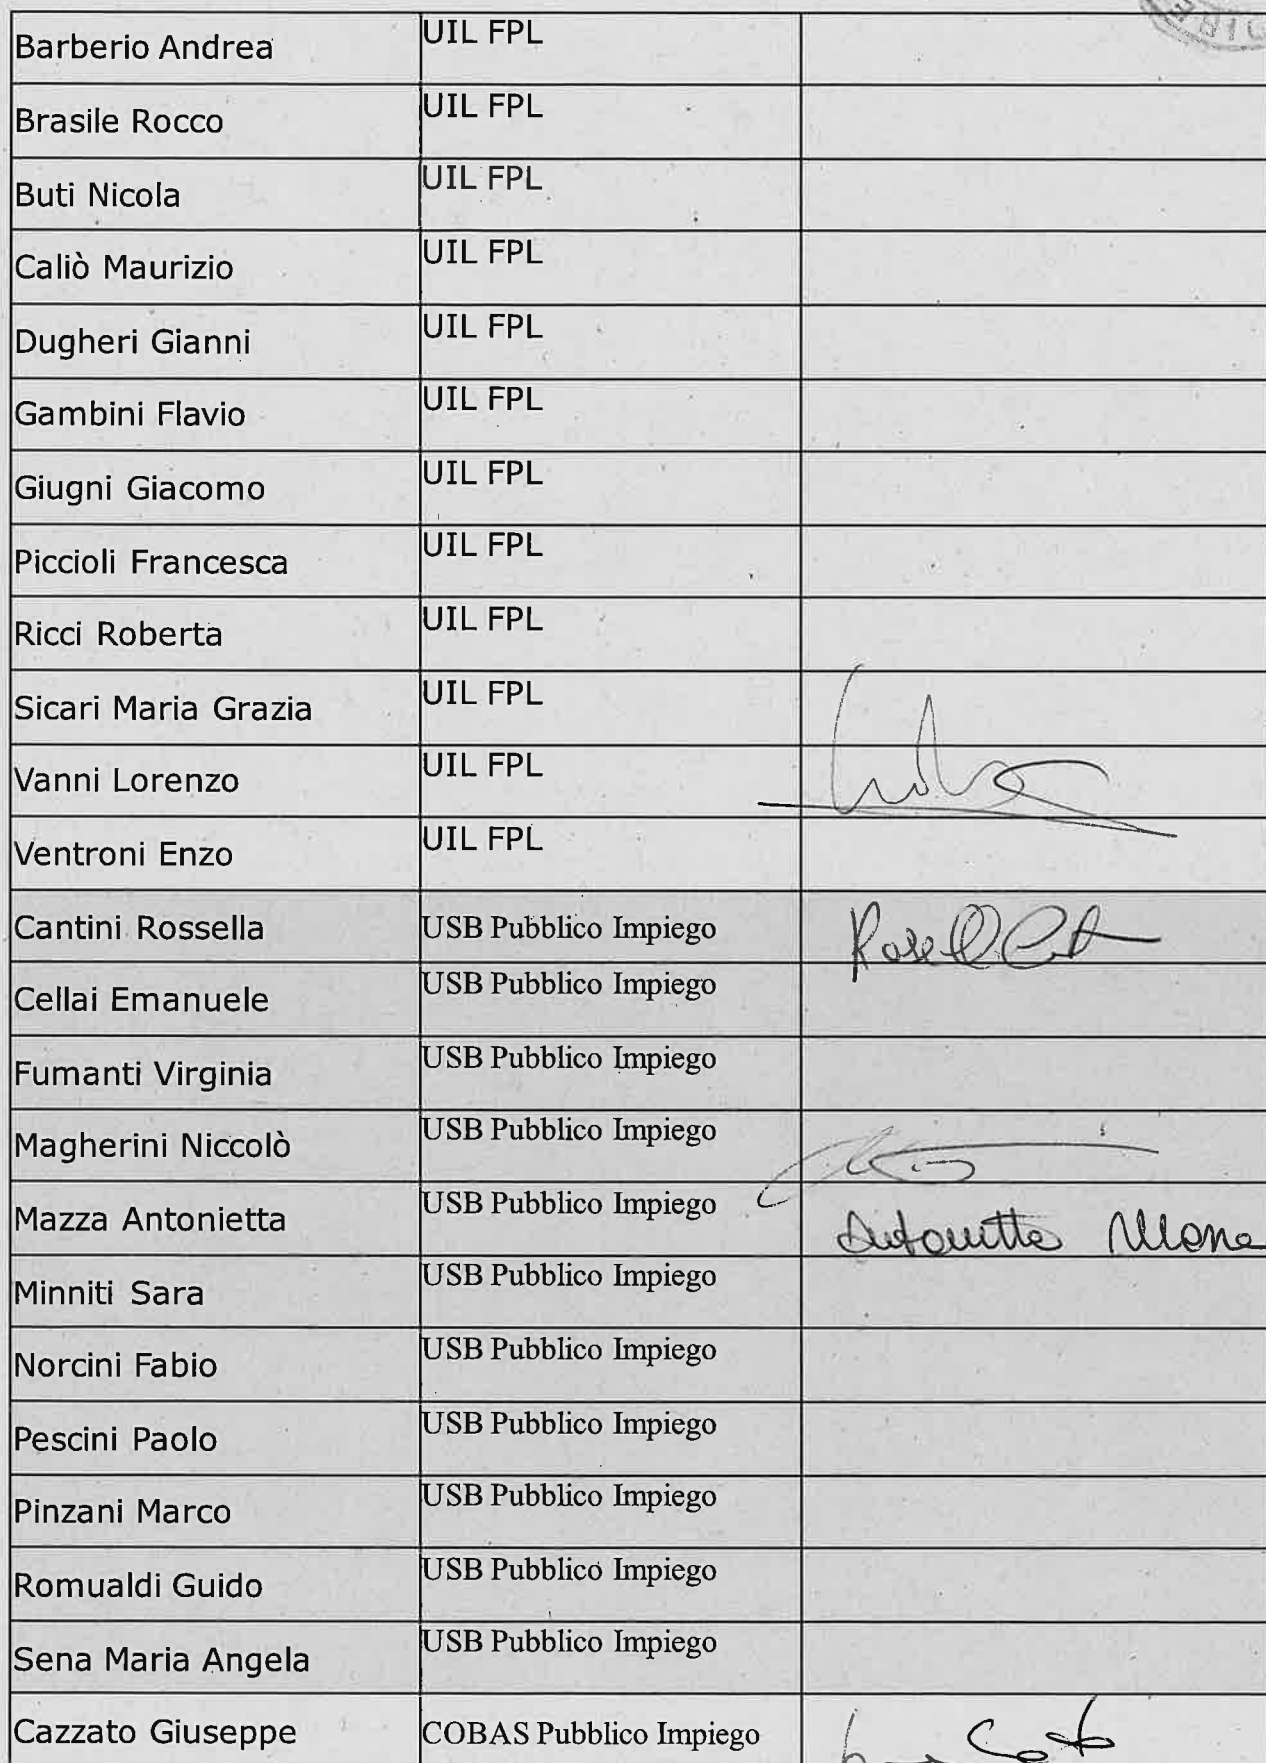 Barberio Andrea UIL FPL
Brasile Rocco UIL FPL
Buti Nicola UIL FPL
Caliò Maurizio UIL FPL
Dugheri Gianni UIL FPL
Gambini Flavio UIL FPL
Giugni Giacomo UIL FPL
Piccioli Francesca UIL FPL
Ricci Roberta UIL FPL
Sicari Maria Grazia UIL FPL
Vanni Lorenzo UIL FPL
Ventroni Enzo UIL FPL
Cantini Rossella USB Pubblico Impiego
Cellai Emanuele USB Pubblico Impiego
Fumanti Virginia USB Pubblico Impiego
Magherini Niccolò USB Pubblico Impiego
Mazza Antonietta USB Pubblico Impiego Antonietta
Minniti Sara USB Pubblico Impiego
Norcini Fabio USB Pubblico Impiego
Pescini Paolo USB Pubblico Impiego
Pinzani Marco USB Pubblico Impiego
Romualdi Guido USB Pubblico Impiego
Sena Maria Angela USB Pubblico Impiego
Cazzato Giuseppe COBAS Pubblico Impiego